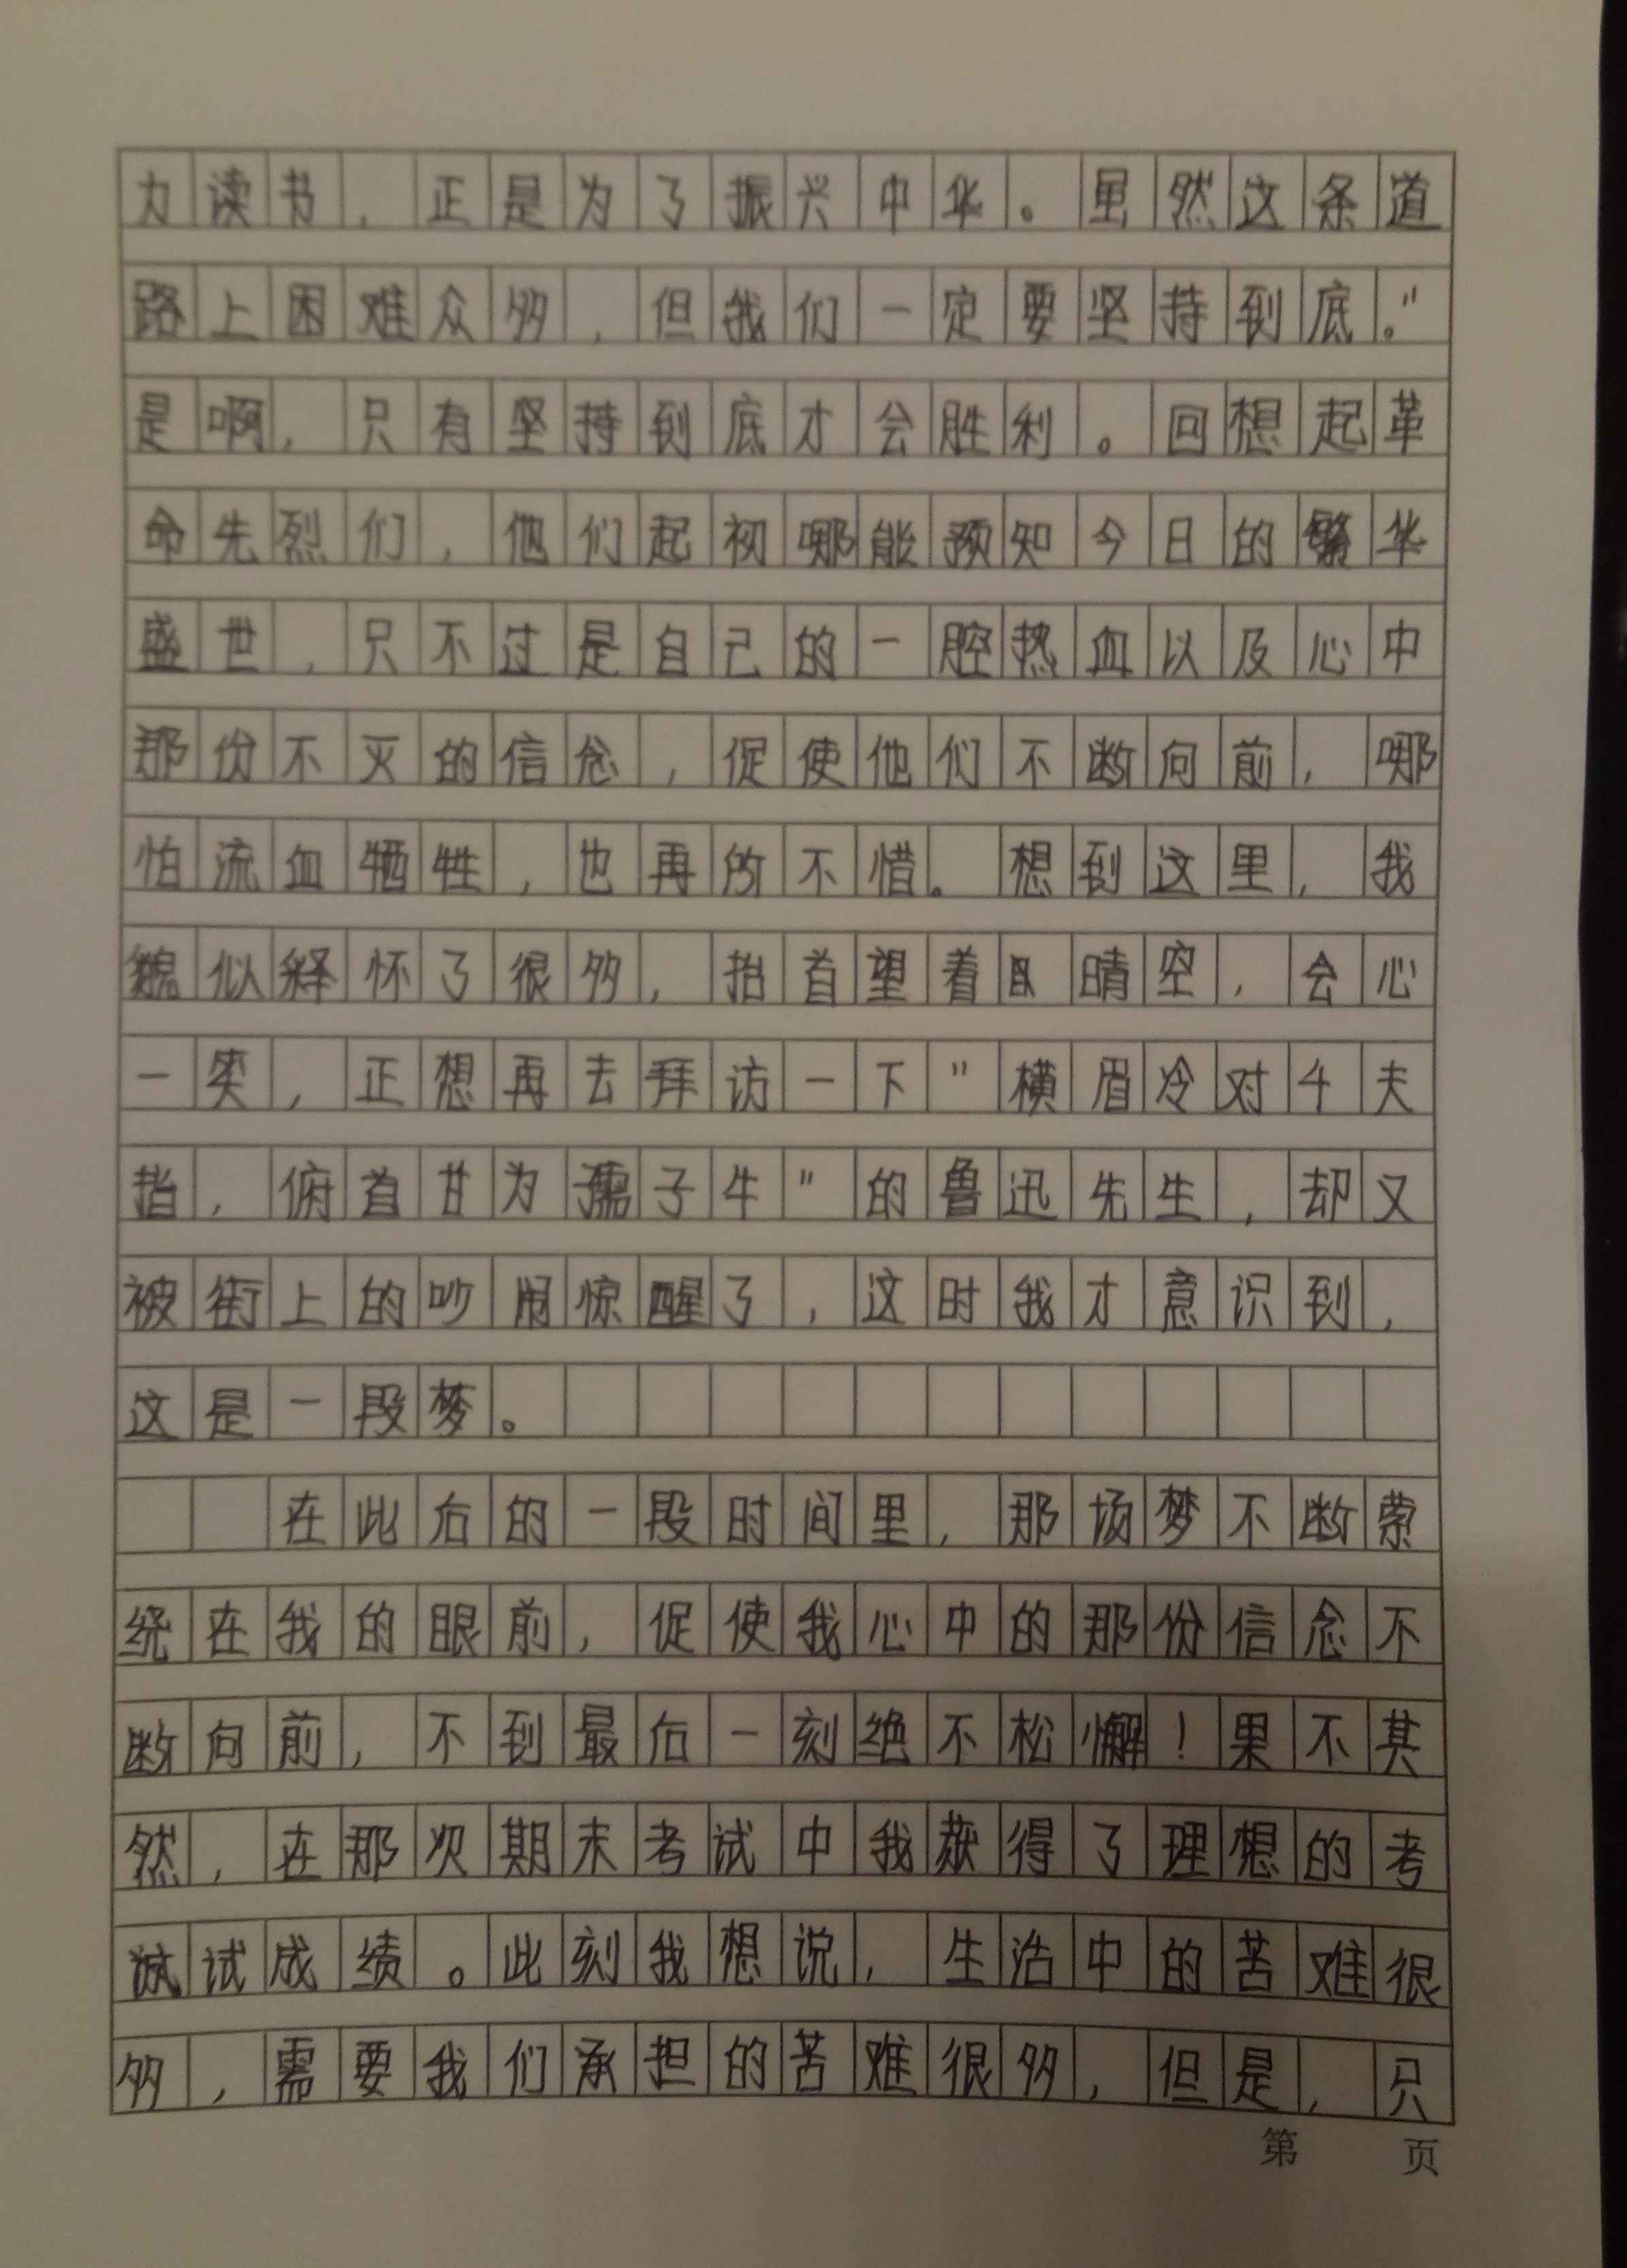 力读书，正是为了振兴中华。虽然这条道
路上困难众多，但我们一定要坚持到底。”
是啊，只有坚持到底才会胜利。回想起革
命先烈们，他们起初哪能预知今日的繁华
盛世，只不过是自己的一腔热血以及心中
那份不灭的信念，促使他们不断向前，哪
怕流血牺牲，也再所不惜。想到这里，我
貌似释怀了很多，抬首望着晴空，会心
一笑，正想再去拜访一下”横眉冷对千夫
指，俯首甘为孺子牛”的鲁迅先生，却又
被街上的吵闹惊醒了，这时我才意识到，
这是一段梦。
在此后的一段时间里，那场梦不断萦
绕在我的眼前，促使我心中的那份信念不
断向前，不到最后一刻绝不松懈！果不其
然，在那次期末考试中我获得了理想的考
试试成绩。此刻我想说，生活中的苦难很
多，需要我们承担的苦难很多，但是，只
第 页